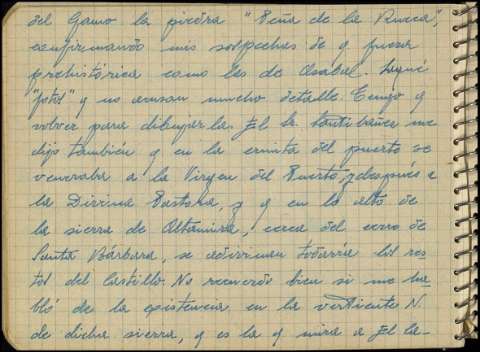 del Gamo la piedra "Peña de la Rueca",
confirmando mis sospechas de q fuera
prehistórica como las de Azabal. Saqué
"fotos" y no acusan mucho detalle. Tengo q
volver para dibujarla. El Sr.
dijo también q en la ermita del puerto se
veneraba a la Virgen del Puerto, y después a
la Divina Pastora, y q en lo alto de
la sierra de Altamira, cerca del cerro de
Santa Bárbara, se adivinan todavía los res-
tos del Castillo. No recuerdo bien si me ha-
bló de la existencia en la vertiente N.
de dicha sierra, q es la q mira a El La-